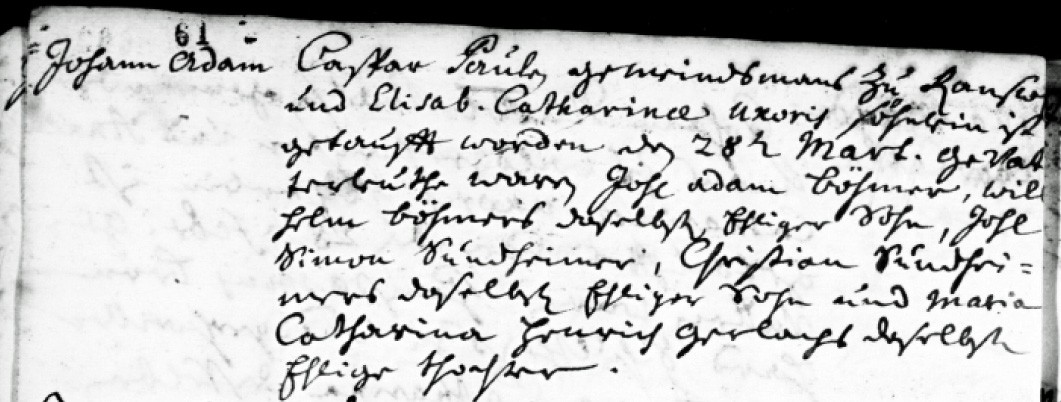 61
Johann Adam Caspar Paulen gemeindsmans zu
und Elisab. Catharinae uxoris söhnlein ist
getaufft worden den 28t Mart. gevat
terleuthe waren Johl adam böhmer, wil
helm böhmers daselbst Ehliger Sohn, Johl
Simon Sündheimer, Christian Sündhei=
mers daselbst Ehliger Sohn und Maria
Catharina Henrich Gerlachs daselbst
Ehlige thochter.